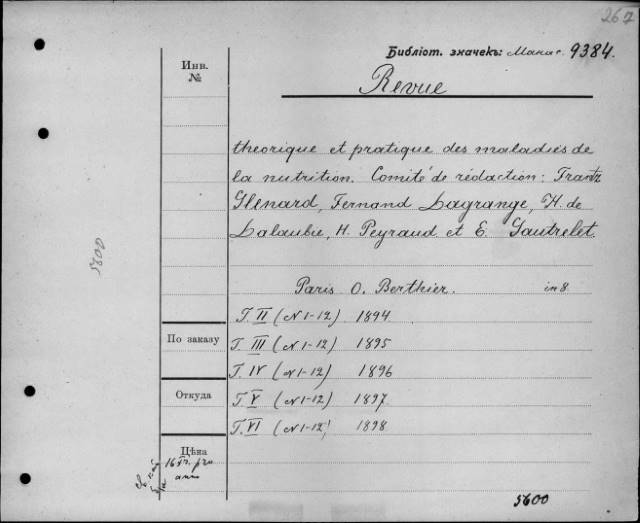 267
Библіот. значекъ: 9384.
Инв.
№
Revue
theorique et pratique des maladies de
la nutrition. Comité de rédaction: Frantz
Glenard, Fernand Lagrange, H. de
Lalaubie, H. Peyraud et E. Gautrelet
5600
Paris O. Berthier. in 8.
T. II (N 1-12) 1894
По заказу
T. III (N 1-12) 1895
T. IV (N 1-12) 1896
Откуда
T. V (N 1-12) 1897
T. VI (N 1-12) 1898
Цѣна
16 fr. pro
anno
5600